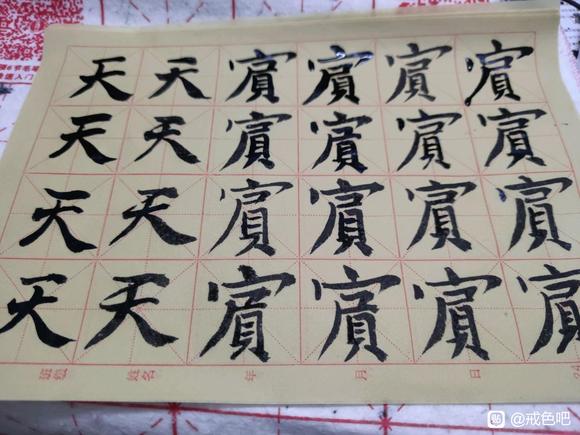 天天賓賓賓賓
天天賓賓賓賓
天天賓賓賓賓
天天賓賓賓賓
班级 姓名 年 月 日
@戒色吧